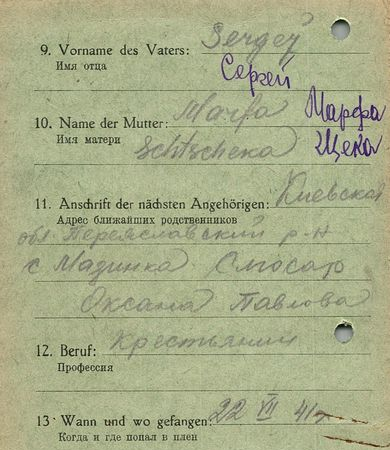 9. Vorname des Vaters: Sergej
Имя отца Сергей
10. Name der Mutter: Marfa Марфа
Имя матери Schtscheka Щека
11. Anschrift der nächsten Angehörigen: Киевская
Адрес ближайших родственников
обл. Переяславский р-н
с Мадинка Слюсар
Оксана Павлова
12. Beruf: Крестьянин
Профессия
13 Wann und wo gefangen: 22 VII 41
Когда и где попал в плен